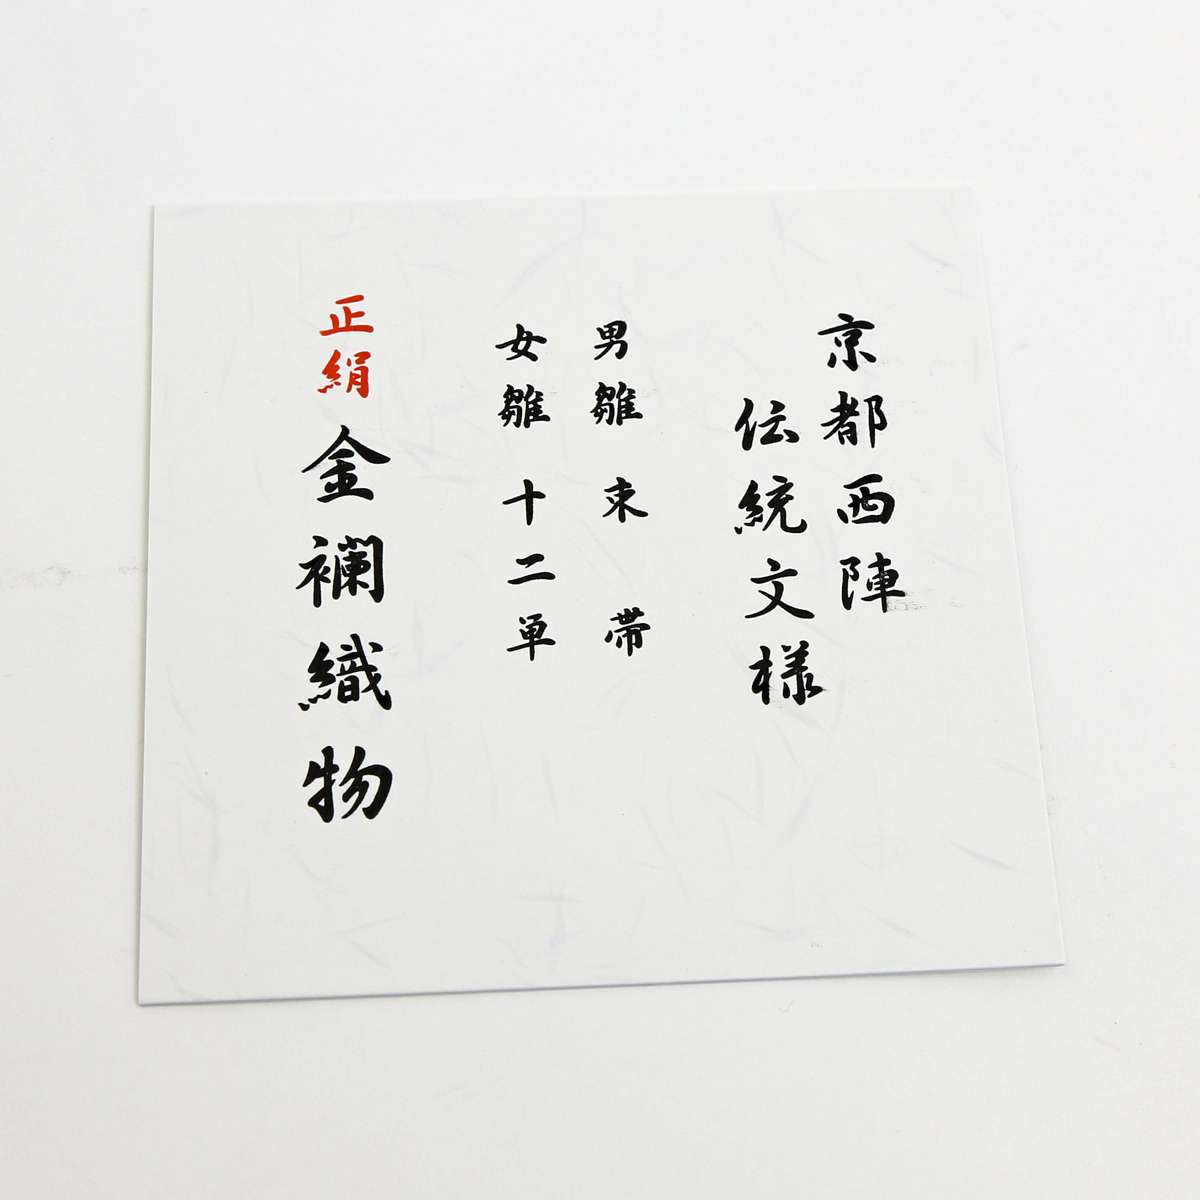 京都西陣
伝統文様
男雛 束 帯
女雛 十二単
正絹 金襴織物